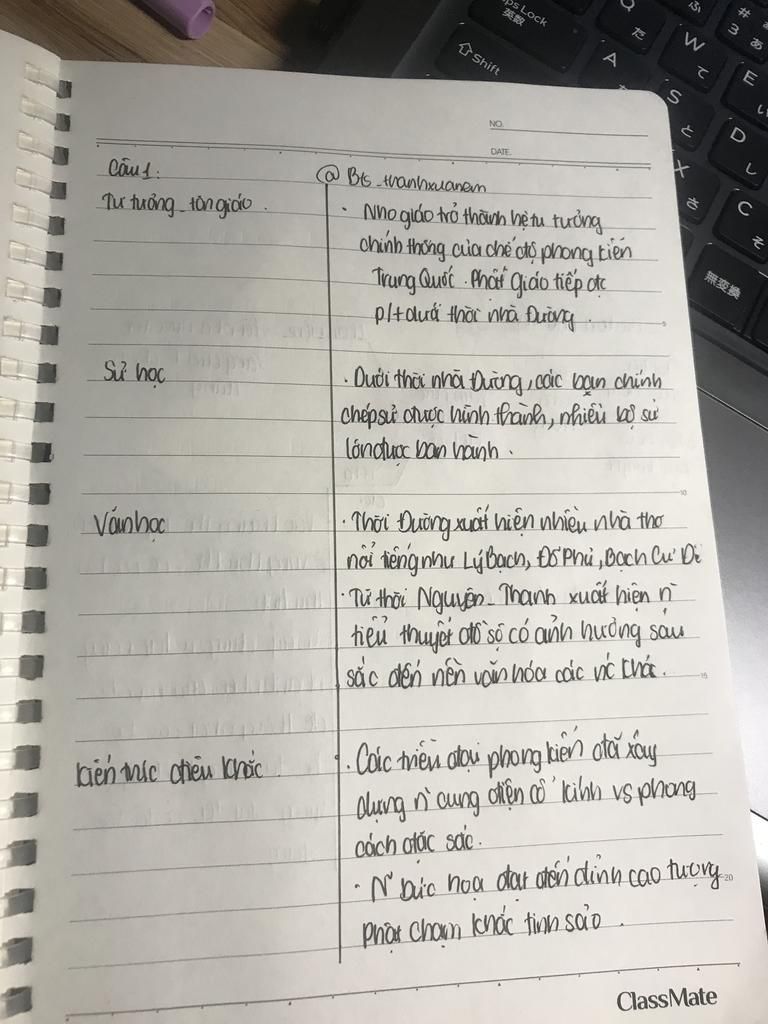 NO.
DATE.
Câu 1:
@ Bts_thanhxuanem
Tư tưởng_tôn giáo.
· Nho giáo trở thành hệ tư tưởng
chính thống của chế độ phong kiến
Trung Quốc. Phật giáo tiếp tục
p/t dưới thời nhà Đường.
Sử học
· Dưới thời nhà Đường, các bạn chính
chép sử được hình thành, nhiều bộ sử
lớn được ban hành.
Văn học
· Thời Đường xuất hiện nhiều nhà thơ
nổi tiếng như Lý Bạch, Đỗ Phủ, Bạch Cư Dị
· Từ thời Nguyên_Thanh xuất hiện n`
tiểu thuyết đồ sộ có ảnh hưởng sâu
sắc đến nền văn hóa các nc khác.
kiến trúc điêu khắc
· Các triều đại phong kiến đã xây
dựng n` cung điện cổ kính vs phong
cách đặc sắc.
· N` bức họa đạt đến đỉnh cao tượng
phật chạm khắc tinh sảo.
5
10
15
20
ClassMate
ps Lock
英数
Shift
Q
た
W
て
E
い
A
S
と
D
し
X
さ
C
そ
#
3
ふ
あ
無変換